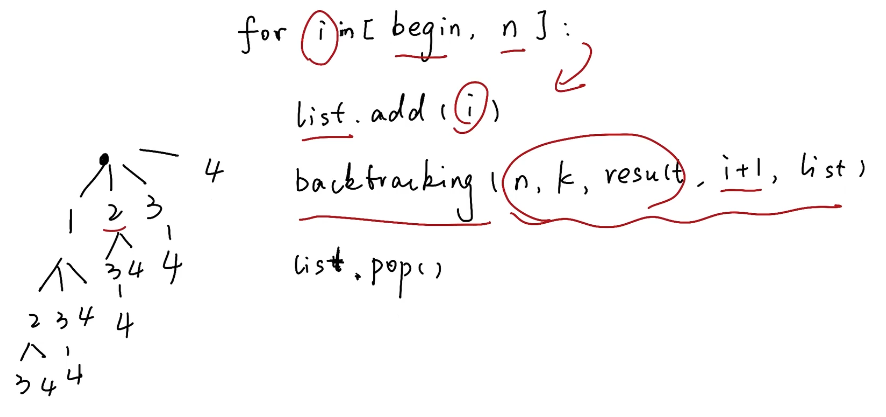 for i in [ begin, n ] :
list. add ( i )
backtracking ( n, k, result, i+1, list )
list. pop ( )
4
1 2 3
3 4 4
2 3 4 4
3 4 4